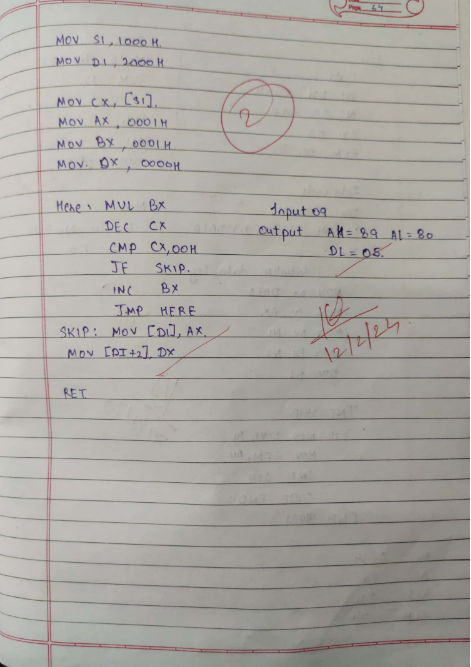 Page 64
MOV SI, 1000H.
MOV DI, 2000H
MOV CX, [SI].
MOV AX, 0001H
MOV BX, 0001H
MOV. DX, 0000H
2
Here: MUL BX
DEC CX
CMP CX, 00H
JE SKIP.
INC BX
JMP HERE
SKIP: MOV [DI], AX.
MOV [DI+2], DX
RET
Input 09
Output AH = 89 AL = 80
DL = 05.
12/2/24